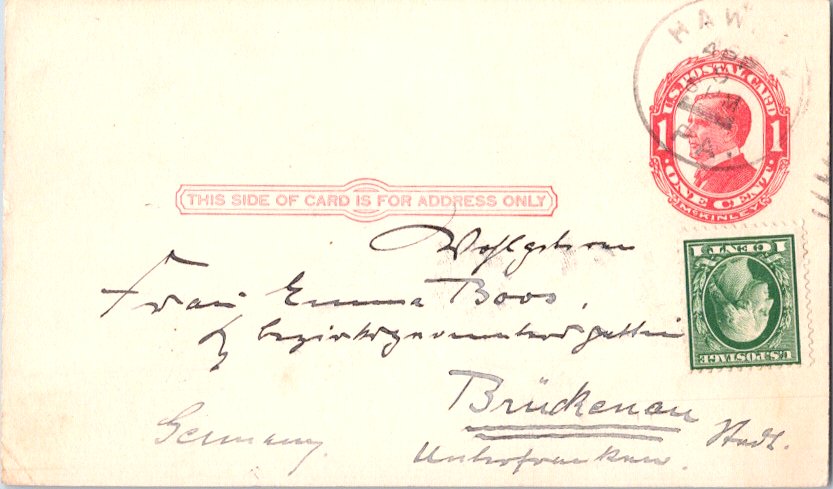 HAW
U.S. POSTAL CARD
1 1
ONE CENT
McKINLEY
THIS SIDE OF CARD IS FOR ADDRESS ONLY
Wohlgeboren
Frau Emma Boos,
1 CENT 1
U.S. POSTAGE
Brückenau Stadt.
Unterfranken.
Germany.